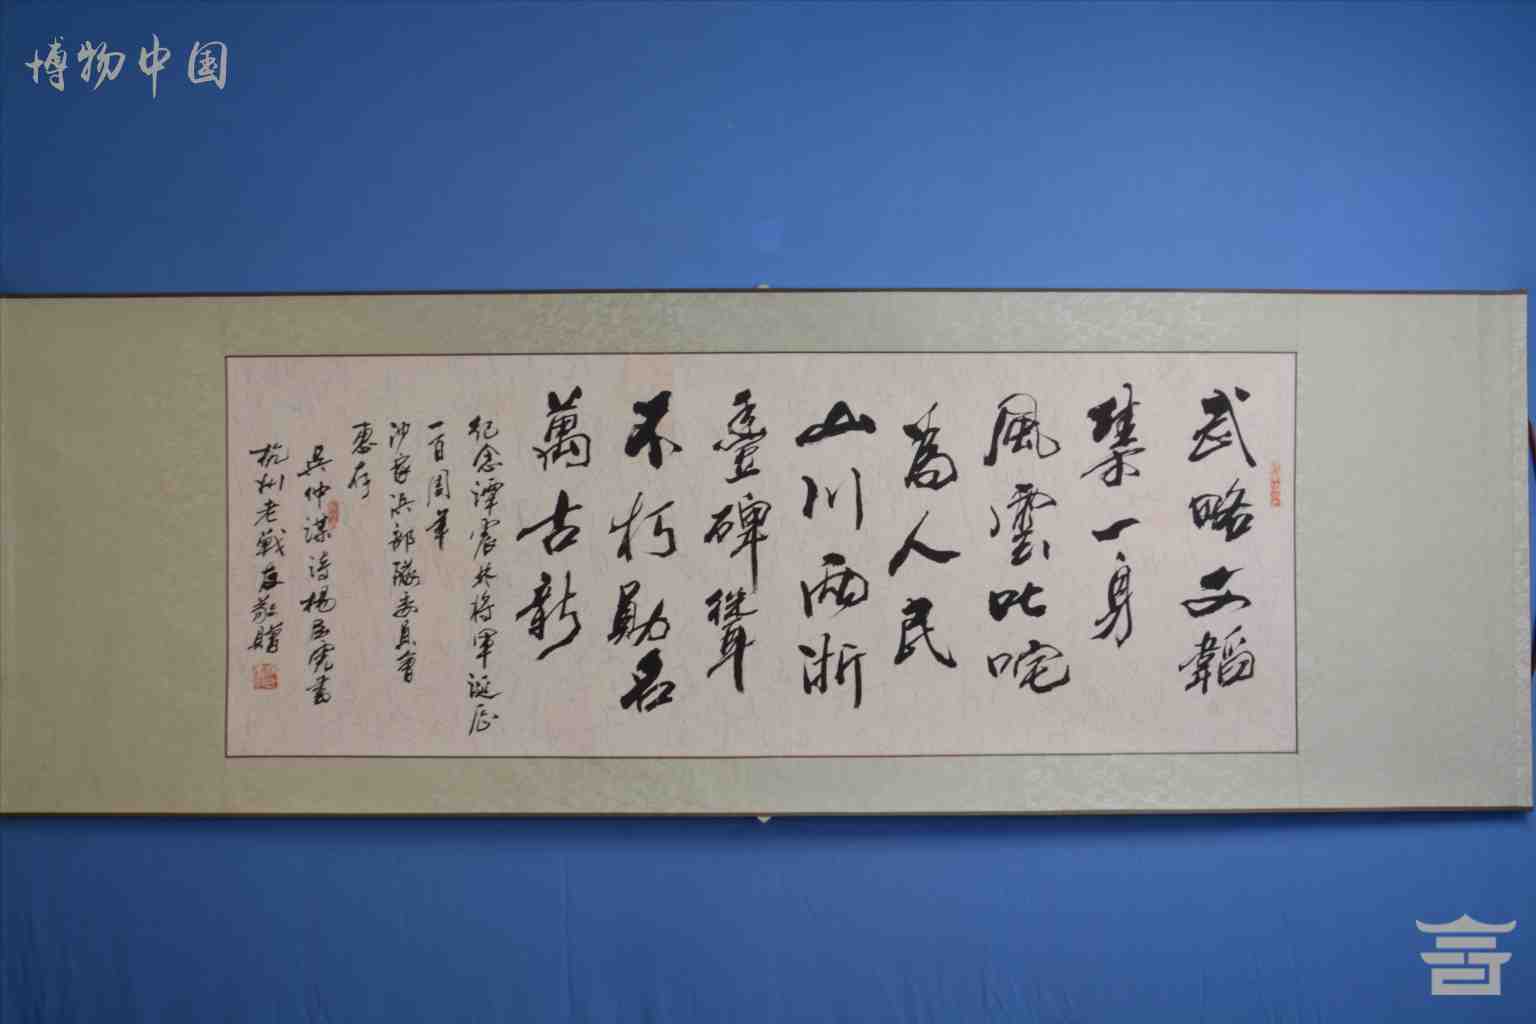 博物中国
武略文韜
集一身
風雲叱咤
為人民
山川兩浙
豐碑聳
不朽勛名
萬古新
纪念谭震林将军诞辰
一百周年
沙家浜部隊委員會
惠存
吴仲谋詩楊 書
杭州老戰友敬贈